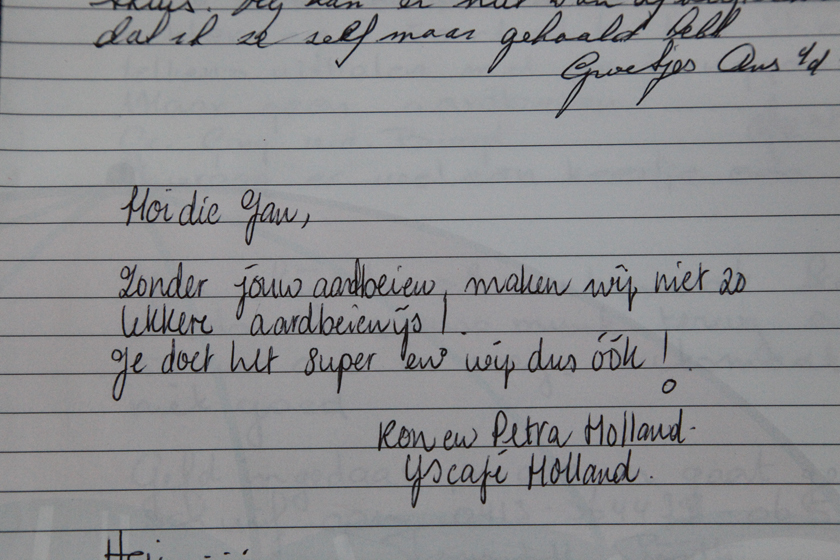 dat ik ze zelf maar gehaald heb
Groetjes Ans v/d
Hoi die Jan,
Zonder jouw aardbeien, maken wij niet zo
lekkere aardbeienijs!
Je doet het super en wij dus óók!
Ron en Petra Holland.
IJscafé Holland.
Hej ...